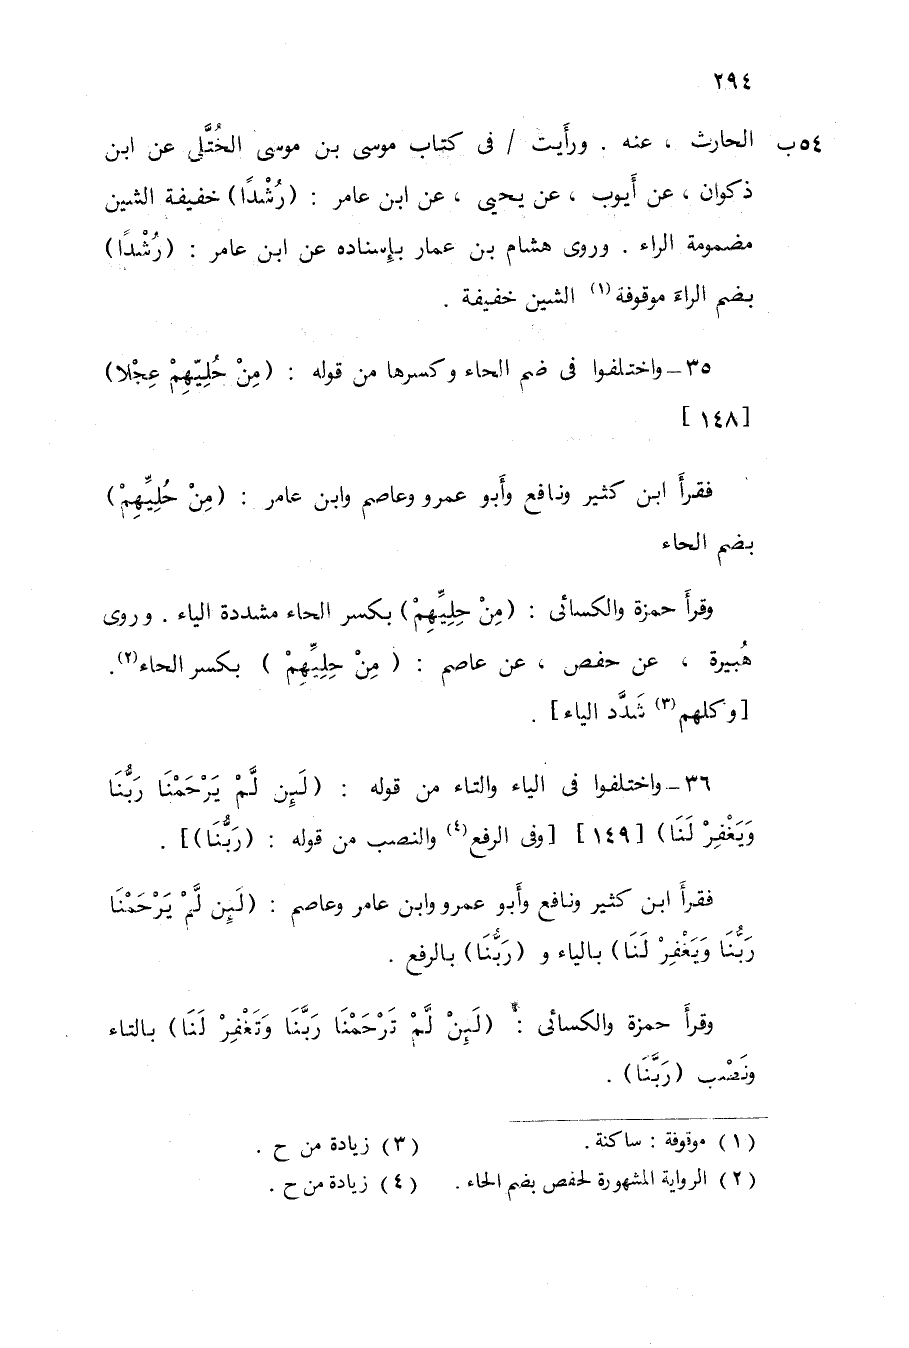 ٢٩٤
٥٤ب الحارث ، عنه . ورأَيت / فى كتاب موسى بن موسى الخُتَّلى عن ابن
ذكوان ، عن أَيوب ، عن يحيى ، عن ابن عامر : (رُشْدًا) خفيفة الشين
مضمومة الراء . وروى هشام بن عمار بإِسناده عن ابن عامر : (رُشْدًا)
بضم الراءَ موقوفة(١) الشين خفيفة .
٣٥ـ واختلفوا فى ضم الحاء وكسرها من قوله : (مِنْ حُلِيّهِمْ عِجْلا)
[١٤٨]
فقرأَ ابن كثير ونافع وأَبو عمرو وعاصم وابن عامر : (مِنْ حُلِيِّهِمْ)
بضم الحاء
وقرأَ حمزة والكسائى : (مِنْ حِلِيِّهِمْ) بكسر الحاء مشددة الياء . وروى
هُبيرة ، عن حفص ، عن عاصم : ( مِنْ حِلِيِّهِمْ ) بكسر الحاء(٢).
[وكلهم(٣) شَدَّد الياء] .
٣٦ـ واختلفوا فى الياء والتاء من قوله : (لَـﯩِن لَّمْ يَرْحَمْنَا رَبُّنَا
وَيَغْفِرْ لَنَا) [١٤٩] [وفى الرفع(٤) والنصب من قوله : (رَبُّنَا)] .
فقرأَ ابن كثير ونافع وأَبو عمرو وابن عامر وعاصم : (لَـﯩِن لَّمْ يَرْحَمْنَا
رَبُّنَا وَيَغْفِرْ لَنَا) بالياء و (رَبُّنَا) بالرفع .
وقرأَ حمزة والكسائى : (لَـﯩِنْ لَّمْ تَرْحَمْنَا رَبَّنَا وَتَغْفِرْ لَنَا) بالتاء
ونَصْب (رَبَّنَا) .
(١) موقوفة : ساكنة . (٣) زيادة من ح .
(٢) الرواية المشهورة لحفص بضم الحاء . (٤) زيادة من ح .